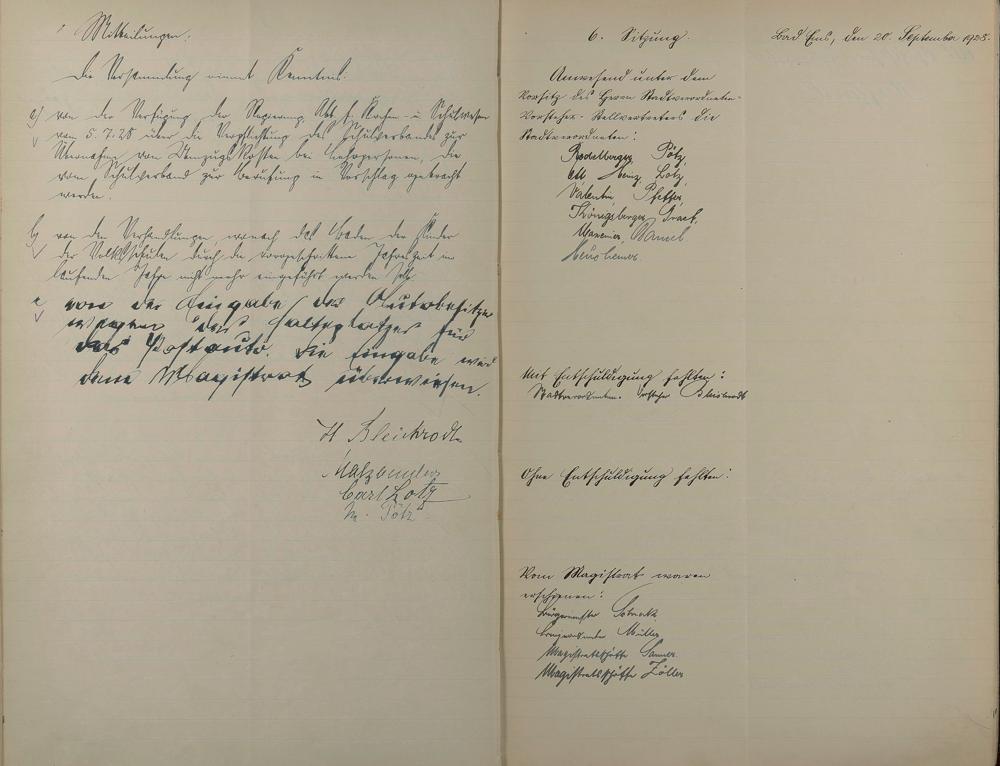 Mitteilungen.
Die Versammlung nimmt Kenntnis:
a) von der Verfügung der Regierung, Abt. f. Kirchen- u. Schulwesen
vom 5.7.28 über die Verpflichtung des Schulverbandes zur
Übernahme von Umzugskosten bei Lehrpersonen, die
vom Schulverband zur Berufung in Vorschlag gebracht
werden.
b) von den Verhandlungen, wonach das Baden der Kinder
der Volksschulen durch die vorgeschrittene Jahreszeit im
laufenden Jahre nicht mehr eingeführt werden soll.
c von der Eingabe der Autobesitzer
wegen des Halteplatzes für
das Postauto. Die Eingabe wird
dem Magistrat überwiesen.
H Bleichrodt
Carl Lotz
M. Pötz
6. Sitzung.
Bad Ems, den 20. September 1928.
Anwesend unter dem
Vorsitz des Herrn Stadtverordneten-
Vorsteher-Stellvertreters die
Stadtverordneten:
Pötz,
Lotz,
Valentin
Königsberger,
Mit Entschuldigung fehlten:
Stadtverordneten. Bleichrodt
Ohne Entschuldigung fehlten:
Vom Magistrat waren
erschienen:
Bürgermeister
Beigeordneter Müller
Magistratsschöffe
Magistratsschöffe Zöller